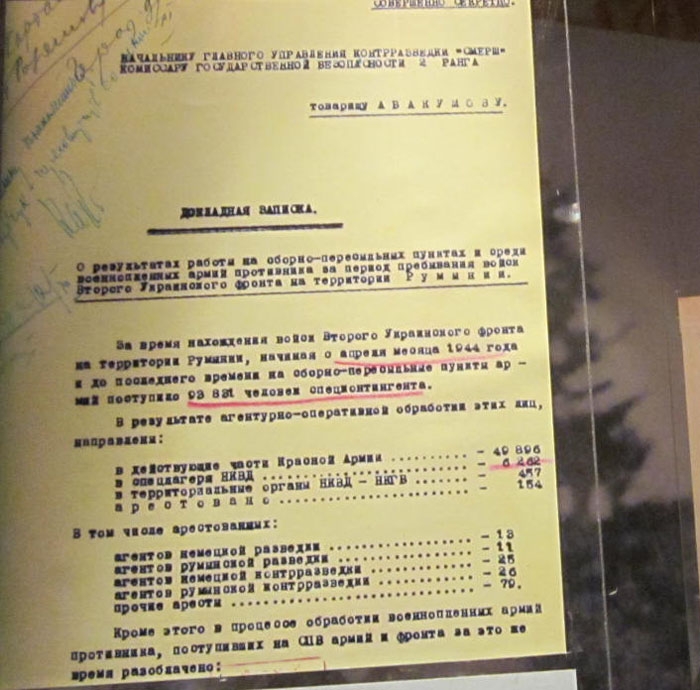 СОВЕРШЕННО СЕКРЕТНО.
НАЧАЛЬНИКУ ГЛАВНОГО УПРАВЛЕНИЯ КОНТРРАЗВЕДКИ "СМЕРШ"
КОМИССАРУ ГОСУДАРСТВЕННОЙ БЕЗОПАСНОСТИ 2 РАНГА
товарищу А В А К У М О В У.
ДОКЛАДНАЯ ЗАПИСКА.
О результатах работы на сборно-пересыльных пунктах и среди
военнопленных армий противника за период пребывания войск
Второго Украинского фронта на территории Р у м ы н и и.
За время нахождения войск Второго Украинского фронта
на территории Румынии, начиная с апреля месяца 1944 года
и до последнего времени на сборно-пересыльные пункты ар -
мий поступило 93 831 человек спецконтингента.
В результате агентурно-оперативной обработки этих лиц,
направлены:
в действующие части Красной Армии .......... - 49 896
в спецлагеря НКВД .......................... - 6 262
в территориальные органы НКВД - НКГБ ....... - 457
а р е с т о в а н о ........................ - 154
В том числе арестованных:
агентов немецкой разведки .................. - 13
агентов румынской разведки ................. - 11
агентов немецкой контрразведки ............. - 25
агентов румынской контрразведки ............ - 26
прочие аресты .............................. - 79.
Кроме этого в процессе обработки военнопленных армий
противника, поступивших на СПВ армий и фронта за это же
время разоблачено: